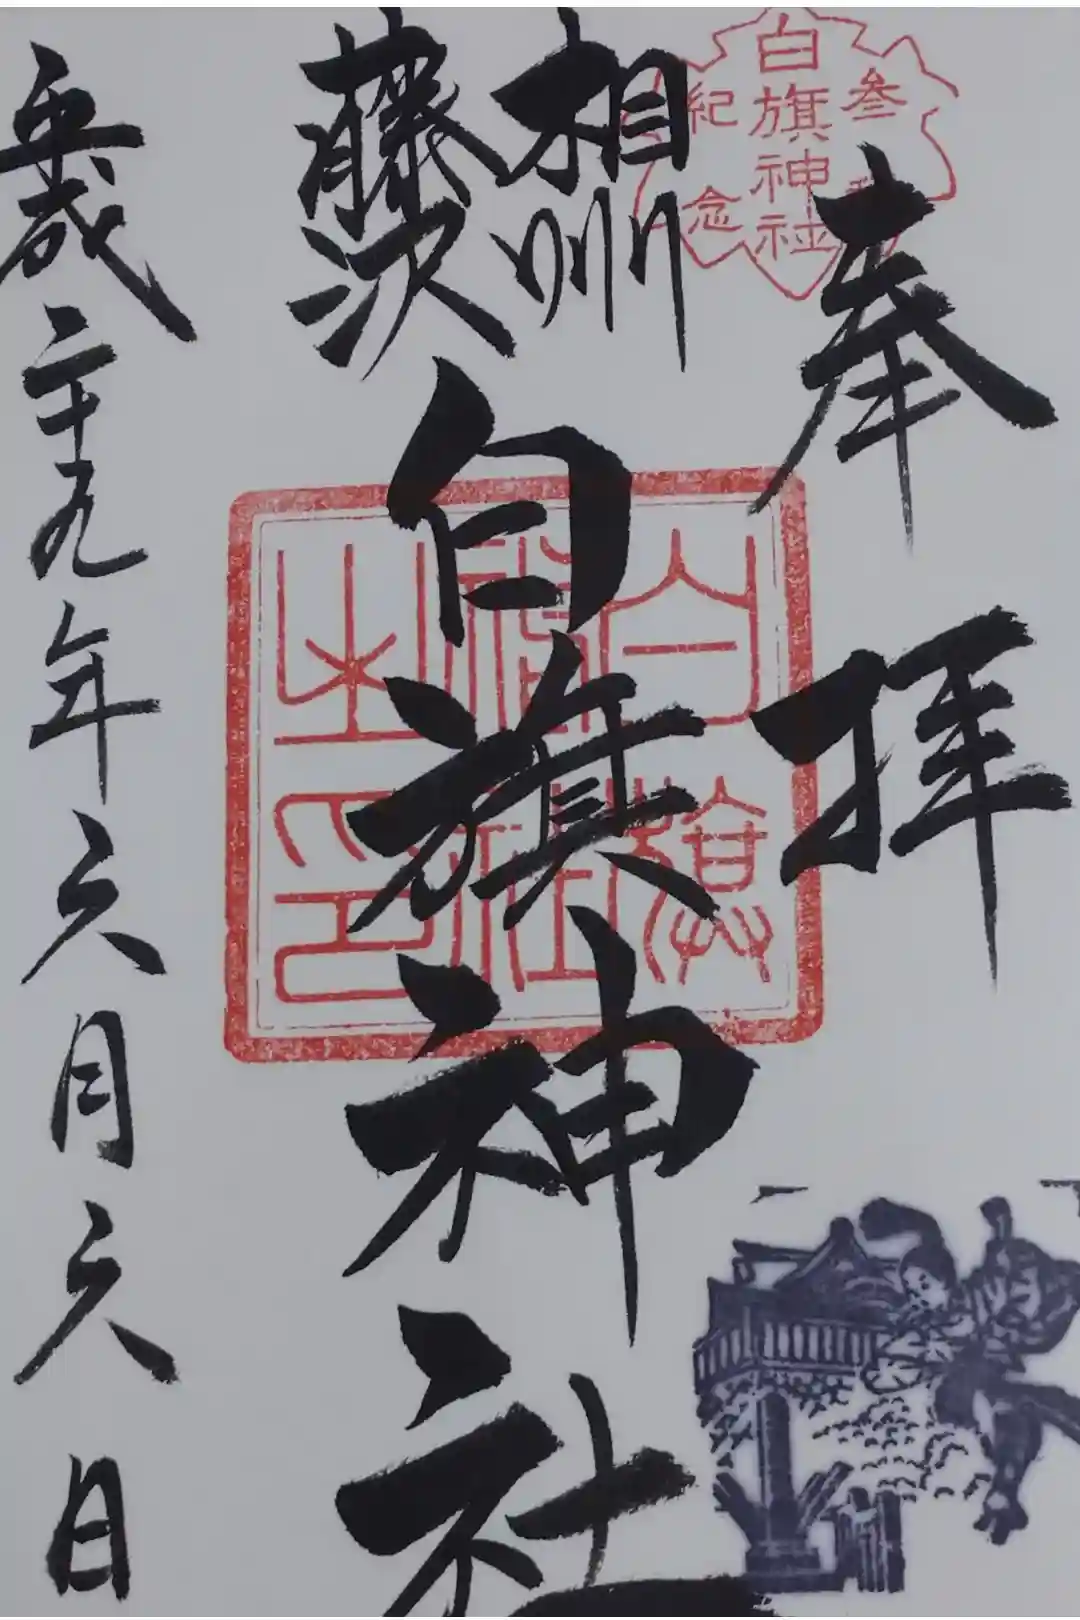 奉拝
白旗神社
参拝
紀念
相州
藤沢
白旗神社
白旗神社之印
平成二十九年六月六日